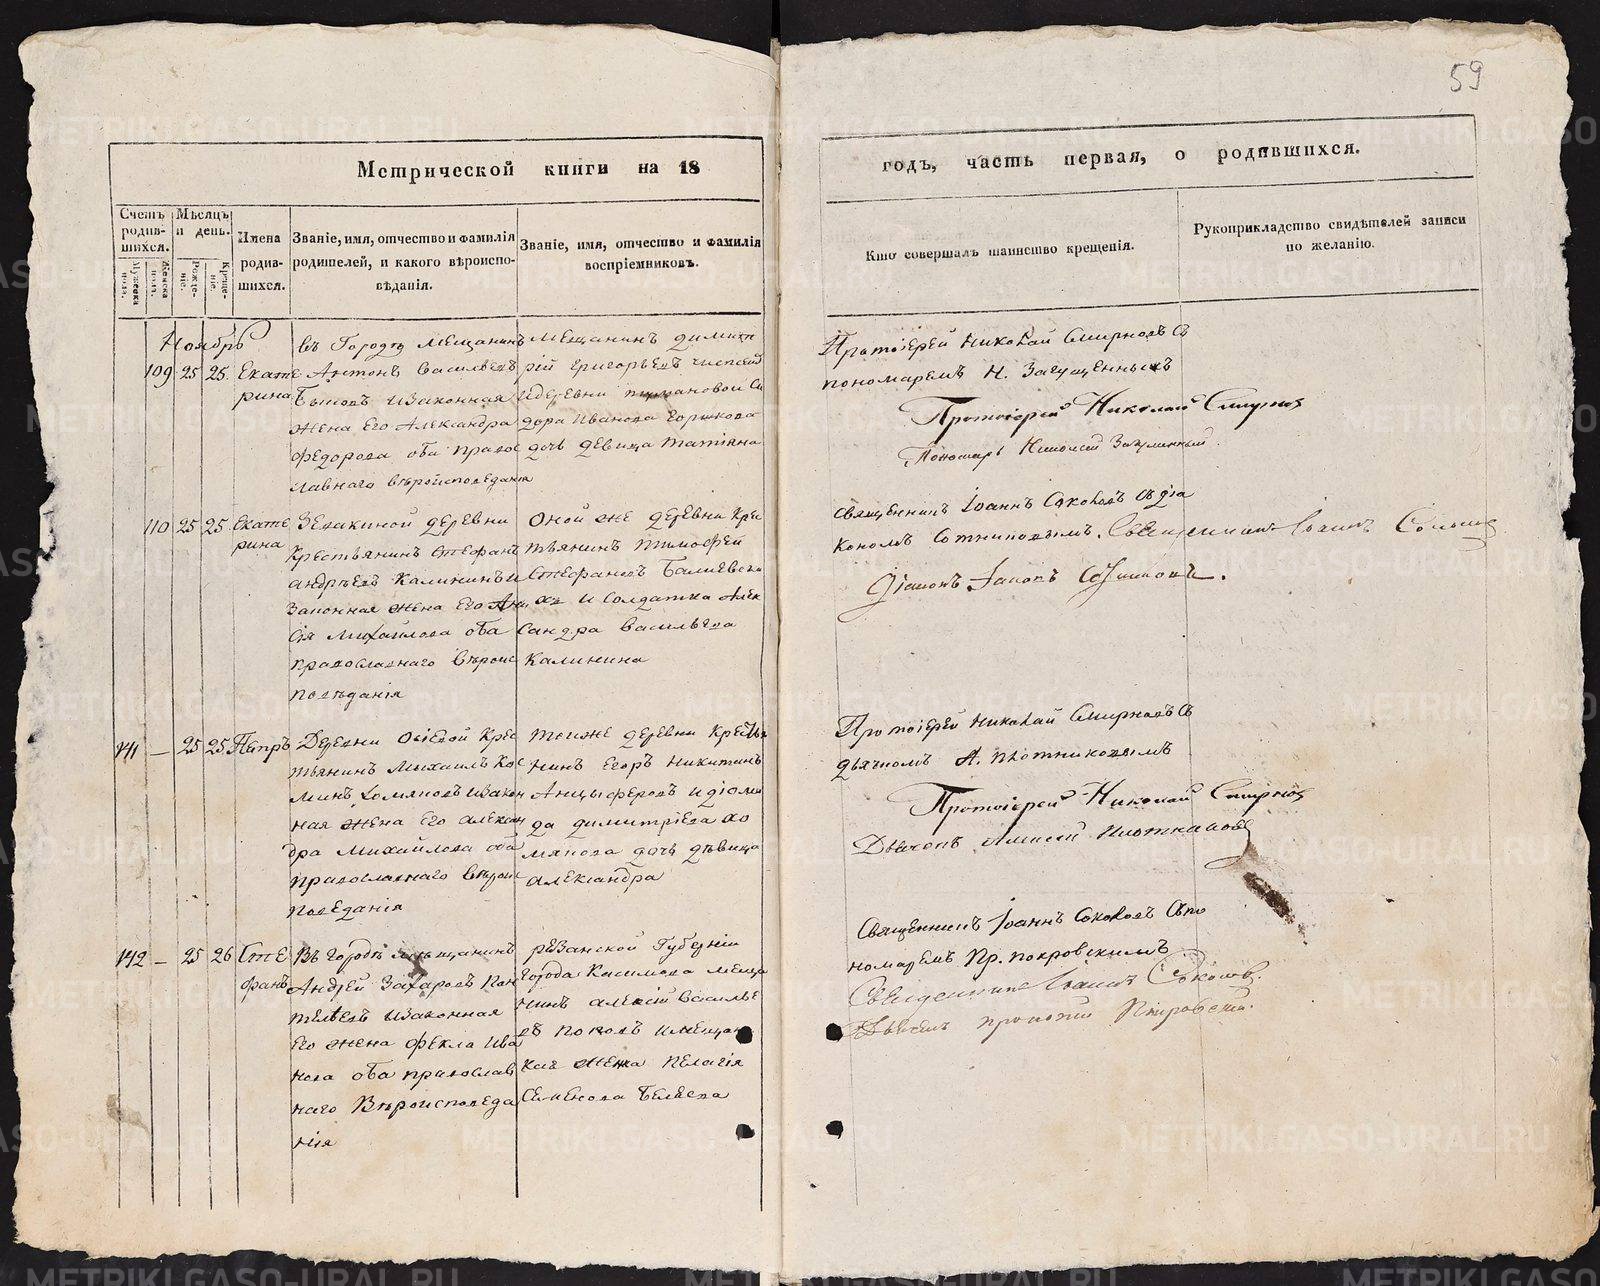 59
Метрической книги на 18
годъ, часть первая, о родившихся.
Счетъ родив-шихся.
Мужеска пола.
Женска пола.
Мѣсяцъ и день.
Рожде-ніе.
Креще-ніе.
Имена родив-шихся.
Званіе, имя, отчество и фамилія родителей, и какого вѣроиспо-вѣданія.
Званіе, имя, отчество и фамилія воспріемниковъ.
Кто совершалъ таинство крещенія.
Рукоприкладство свидѣтелей записи по желанію.
Ноябрь
109 25 25. Екате
рина
въ Городѣ мещанинъ
Антонъ Васильевъ
Бытовъ изаконная
жена Его Александра
Федорова оба право
лавнаго вѣроисповеданія
Мещанинъ димит
рій григорьевъ
идеревни
дора Иванова Горшкова
дочь девица татіана
Протоіерей Николай Смирновъ съ
пономаремъ Н.
Протоіерей Николай Смирнов
Пономарь Николай
110 25 25. Екате
рина
деревни
Крестьянинъ Стефанъ
андрѣевъ Калининъ и
Законная жена его
сія михайлова оба
православнаго вѣроис
поведанія
Оной же деревни Кре
тьянинъ тимофей
Стефановъ
и солдатка Алек
сандра васильева
Калинина
священникъ Іоаннъ Соколовъ съ діа
кономъ Сотниковымъ. Священникъ Іоаннъ Соколов
Діаконъ
111 — 25 25 Петръ
Деревни Крес
тьянинъ Михаилъ Кос
минъ изакон
ная жена его алексан
дра михайлова оба
православнаго вѣроис
поведанія
тойже деревни Кресть
нинъ Егоръ Никитинъ
Анцыферовъ и діоми
да димитріева хо
мякова дочь дѣвица
александра
Протоіерей Николай Смирновъ съ
дьячкомъ А. плотниковымъ
Протоіерей Николай Смирнов
Дьячекъ Алексей Плотников
112 — 25 26 Сте
фанъ
Въ городѣ мещанинъ
Андрей Захаровъ Пан
телѣевъ изаконная
его жена фекла Ива
нова оба православ
наго Вѣроисповеда
нія
резанской Губерніи
города Касимова меща
нинъ алексій василье
въ Поповъ имещан
ка жена пелагія
Семенова Беляева
Священникъ Іоаннъ Соколовъ съ по
номаремъ Пр. покровскимъ
Священникъ Іоаннъ Соколов.
METRIKI.GASO-URAL.RU